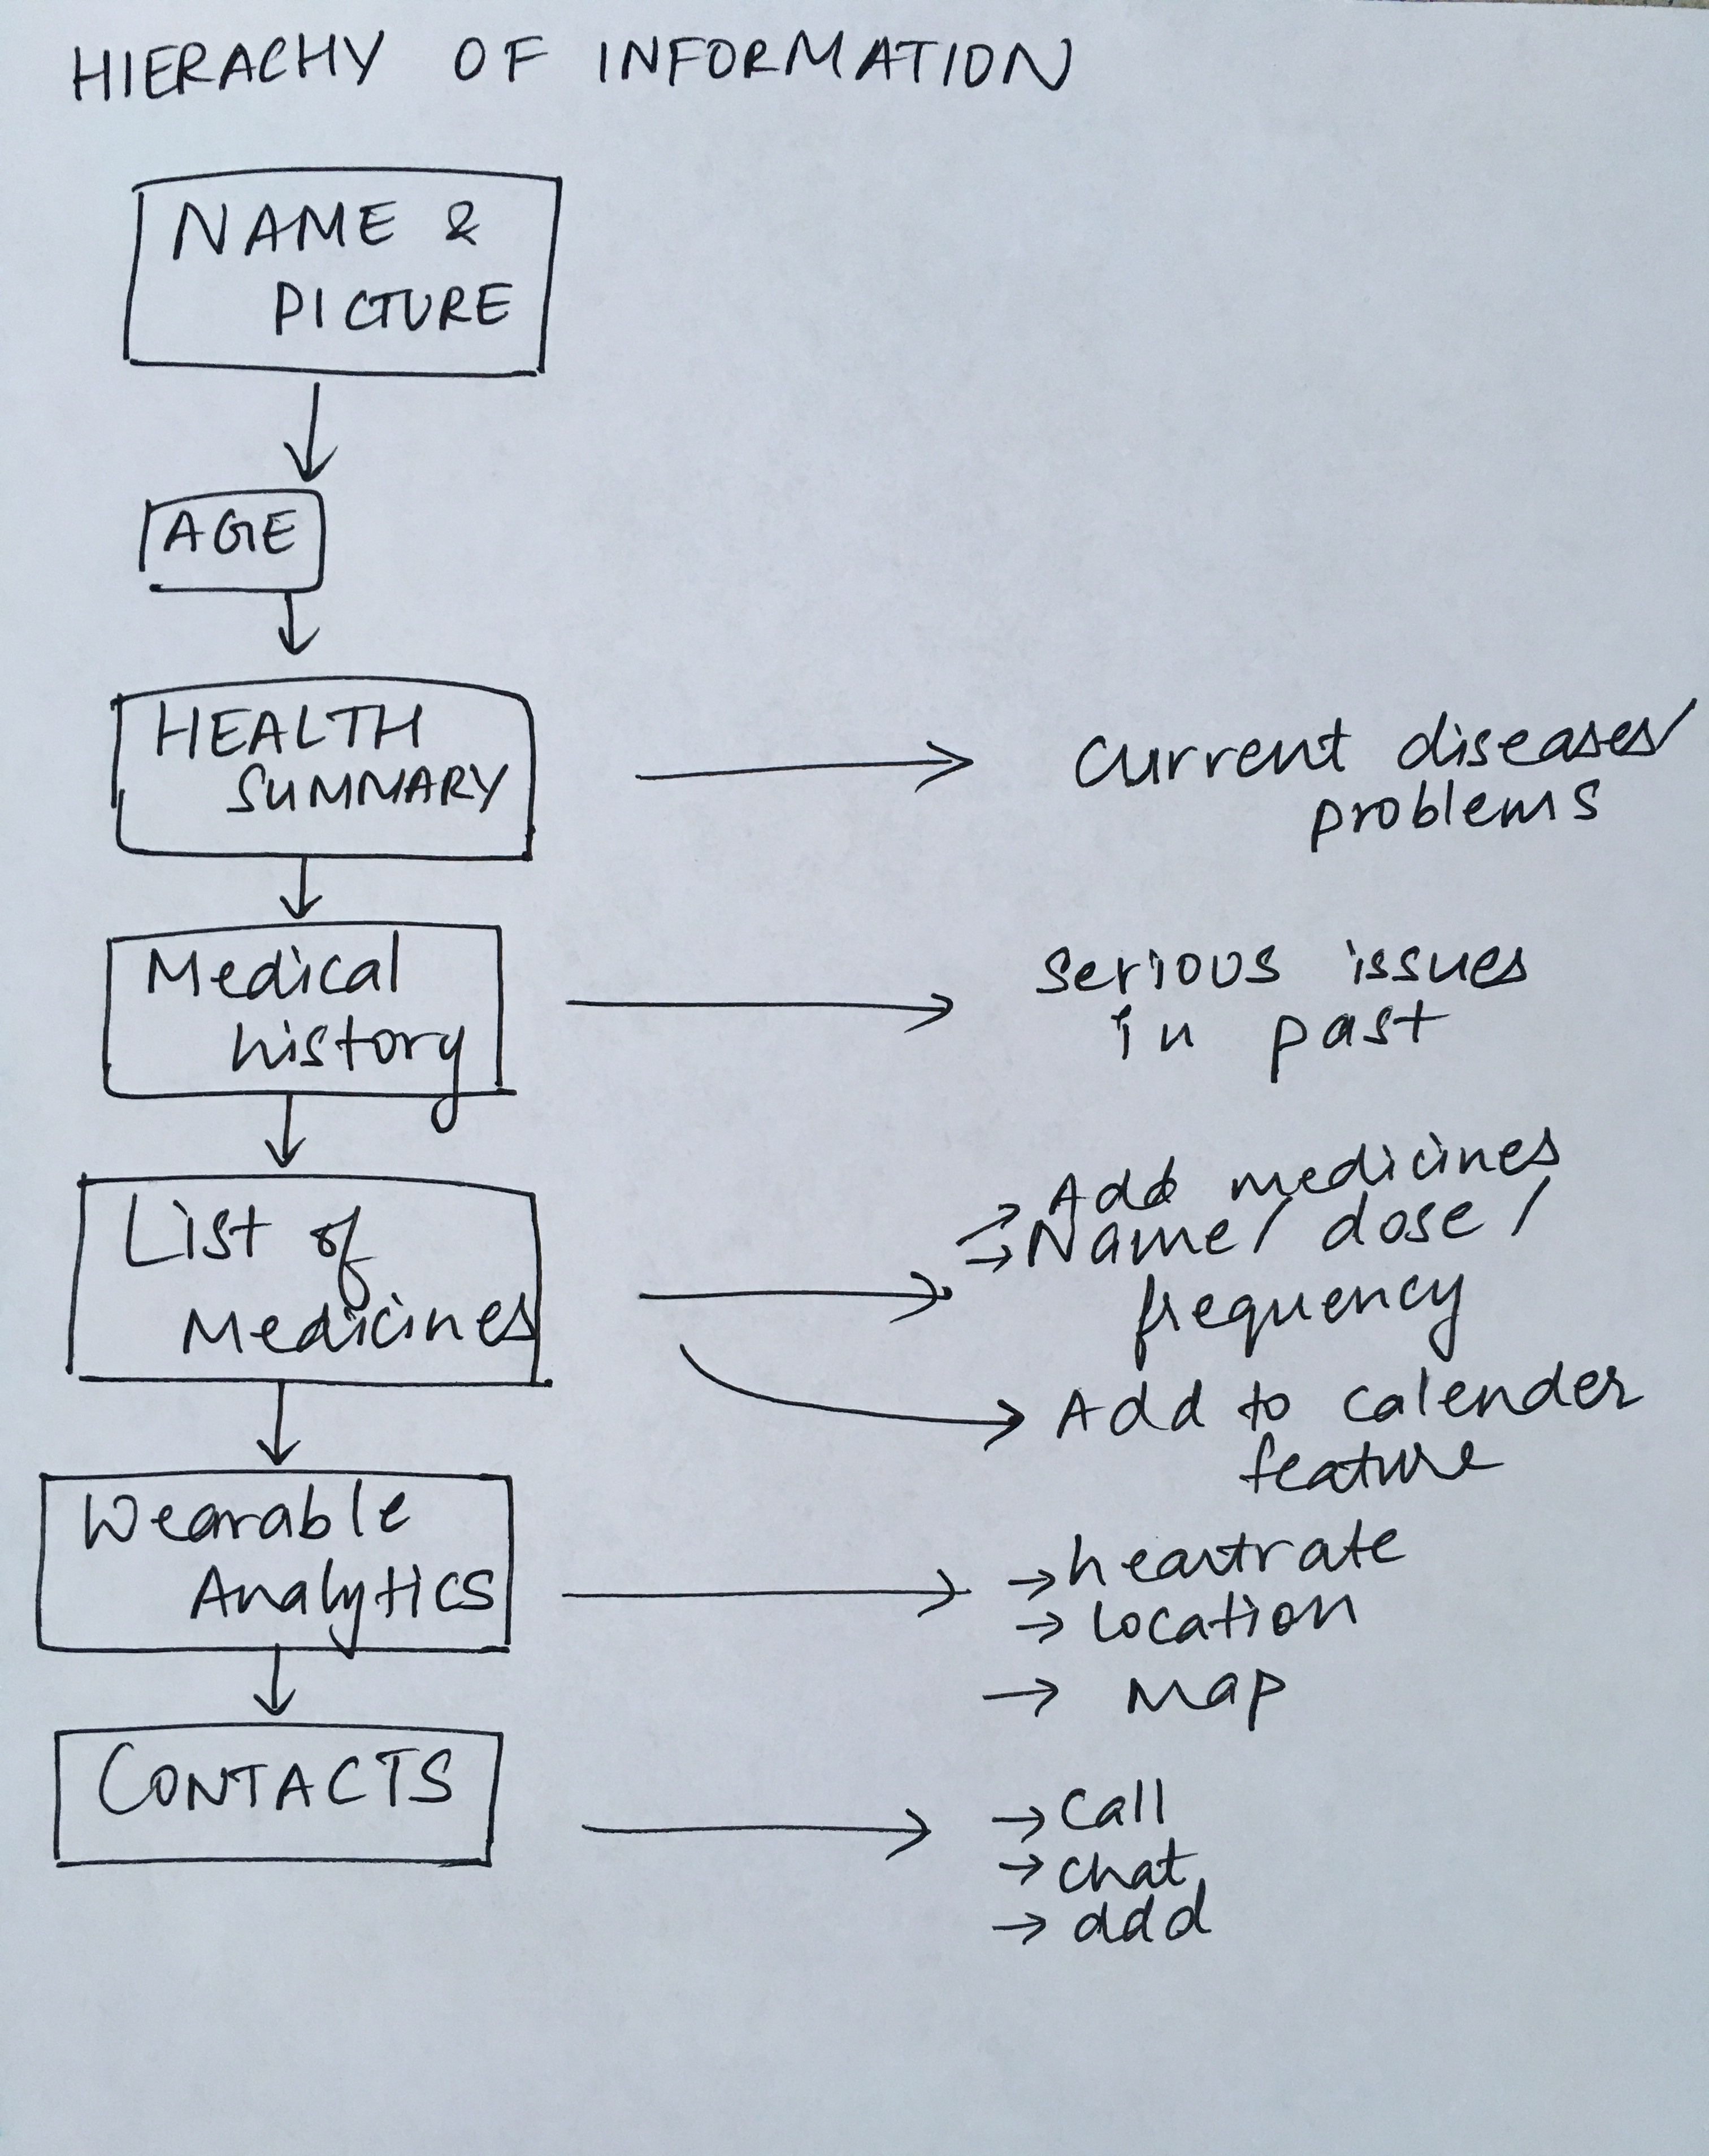 HIERACHY OF INFORMATION
NAME &
PICTURE
AGE
HEALTH
SUMMARY
Current diseases/
problems
Medical
history
serious issues
in past
List of
Medicines
→ Add medicines
→ Name / dose /
frequency
Add to calender
feature
Wearable
Analytics
→ heartrate
→ location
→ Map
CONTACTS
→ Call
→ chat
→ add